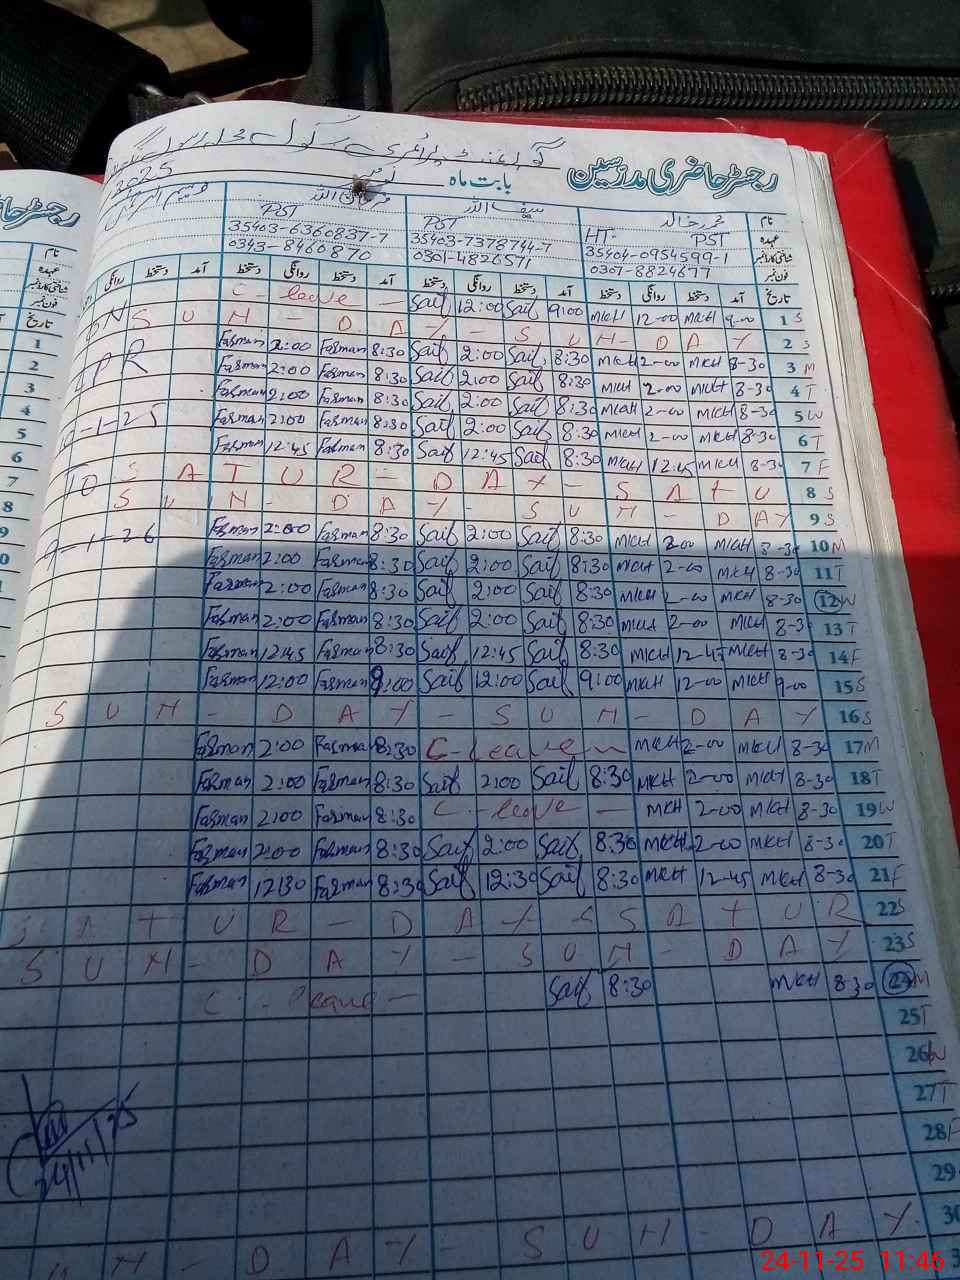 رجسٹر حاضری مدرسین بابت ماہ نومبر 2025
نام محمد خالد سیف اللہ فرمان اللہ
عہدہ HT- PST PST PST
شناختی کارڈ نمبر 35404-0954599-1 35403-7378744-7 35403-6360837-7
فون نمبر 0307-8824677 0301-4826571 0343-8460870
تاریخ آمد دستخط روانگی دستخط آمد دستخط روانگی دستخط آمد دستخط روانگی دستخط آمد روانگی
C - leave - Saif 12:00 Saif 9:00 MKH 12-00 MKH 9-00 1 S
S U N - D A Y - S U N - D A Y 2 S
Farman 2:00 Farman 8:30 Saif 2:00 Saif 8:30 MKH 2-00 MKH 8-30 3 M
Farman 2:00 Farman 8:30 Saif 2:00 Saif 8:30 MKH 2-00 MKH 8-30 4 T
Farman 2:00 Farman 8:30 Saif 2:00 Saif 8:30 MKH 2-00 MKH 8-30 5 W
Farman 2:00 Farman 8:30 Saif 2:00 Saif 8:30 MKH 2-00 MKH 8-30 6 T
Farman 12:45 Farman 8:30 Saif 12:45 Saif 8:30 MKH 12:45 MKH 8-30 7 F
TO S A T U R - D A Y - S A T U 8 S
S U N - D A Y - S U N - D A Y 9 S
Farman 2:00 Farman 8:30 Saif 2:00 Saif 8:30 MKH 2-00 MKH 8-30 10 M
Farman 2:00 Farman 8:30 Saif 2:00 Saif 8:30 MKH 2-00 MKH 8-30 11 T
Farman 2:00 Farman 8:30 Saif 2:00 Saif 8:30 MKH 2-00 MKH 8-30 12 W
Farman 2:00 Farman 8:30 Saif 2:00 Saif 8:30 MKH 2-00 MKH 8-30 13 T
Farman 12:45 Farman 8:30 Saif 12:45 Saif 8:30 MKH 12-45 MKH 8-30 14 F
Farman 12:00 Farman 9:00 Saif 12:00 Saif 9:00 MKH 12-00 MKH 9-00 15 S
S U N - D A Y - S U N - D A Y 16 S
Farman 2:00 Farman 8:30 C - leave - MKH 2-00 MKH 8-30 17 M
Farman 2:00 Farman 8:30 Saif 2:00 Saif 8:30 MKH 2-00 MKH 8-30 18 T
Farman 2:00 Farman 8:30 C - leave - MKH 2-00 MKH 8-30 19 W
Farman 2:00 Farman 8:30 Saif 2:00 Saif 8:30 MKH 2-00 MKH 8-30 20 T
Farman 12:30 Farman 8:30 Saif 12:30 Saif 8:30 MKH 12-45 MKH 8-30 21 F
S A T U R - D A Y - S A T U R 22 S
S U N - D A Y - S U N - D A Y 23 S
C - leave - Saif 8:30 MKH 8-30 24 M
25 T
26 W
27 T
28 F
29
24/11/25
S U N - D A Y - S U N - D A Y 30
24-11-25 11:46